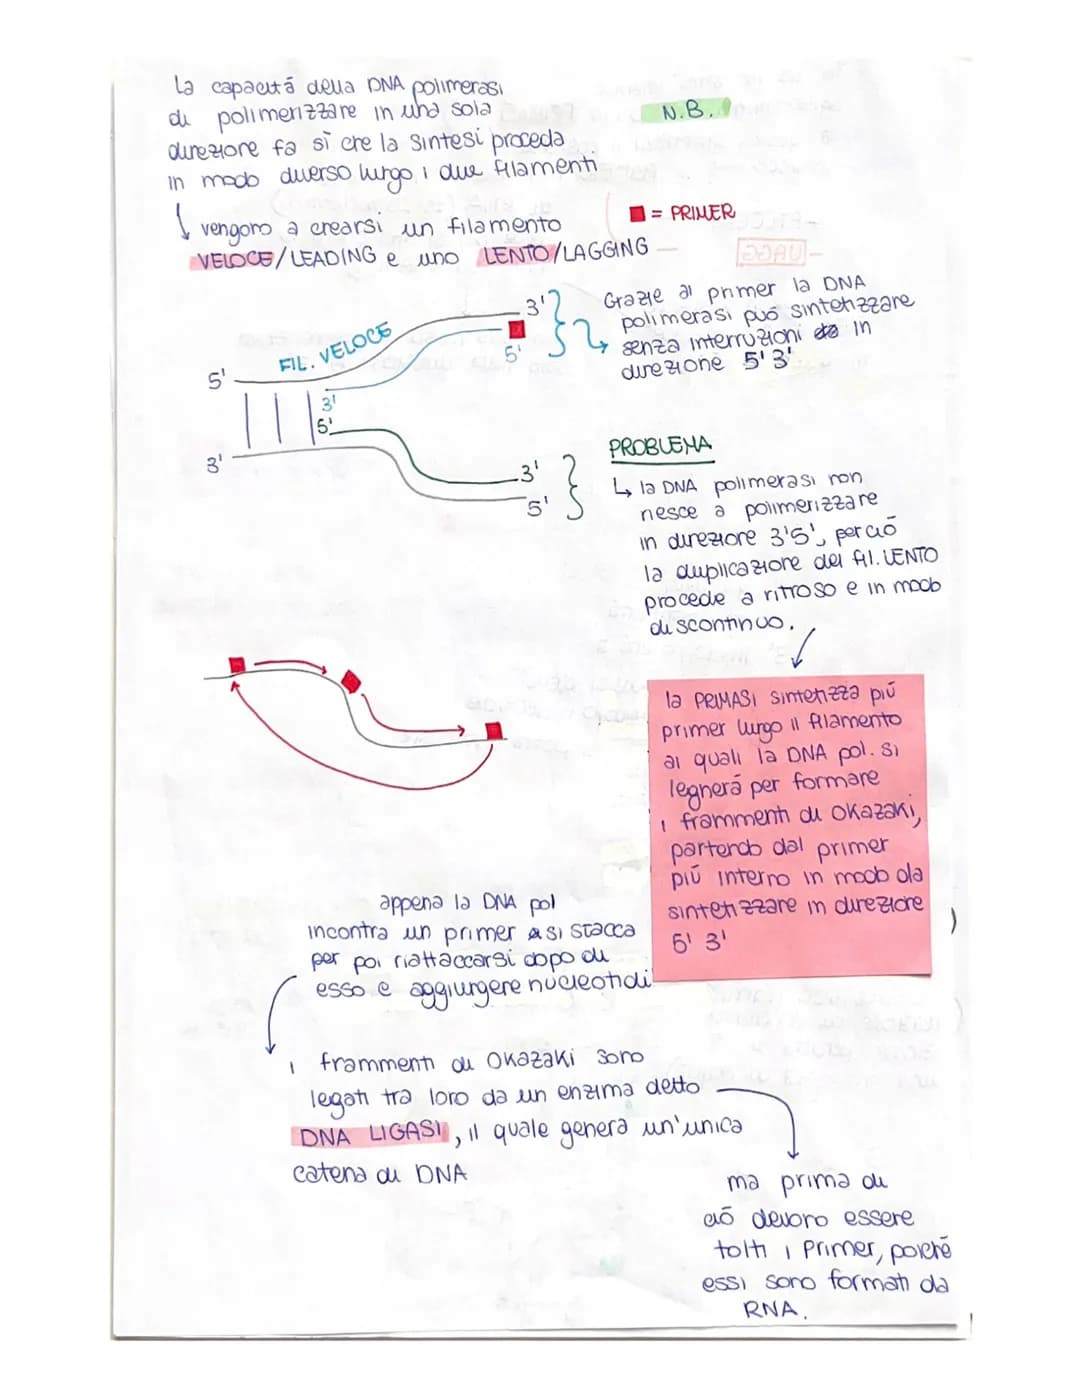 La capacitá della DNA polimerasi
di polimerizzare in una sola
direzione fa sì che la sintesi proceda
in modo diverso lungo i due filamenti
N.B.
vengono a crearsi un filamento
VELOCE/LEADING e uno LENTO/LAGGING
= PRIMER
Grazie al primer la DNA
polimerasi può sintetizzare
senza interruzioni in
direzione 5' 3'
FIL. VELOCE
3'
5'
5'
3'
5'
3'
3'
5'
PROBLEMA
↳ la DNA polimerasi non
riesce a polimerizzare
in direzione 3'5', perciò
la duplicazione del fil. LENTO
procede a ritroso e in modo
discontinuo.
la PRIMASI sintetizza piú
primer lungo il filamento
ai quali la DNA pol. si
legherá per formare
i frammenti di Okazaki,
partendo dal primer
piú interno in modo da
sintetizzare in direzione
5' 3'
appena la DNA pol
incontra un primer si stacca
per poi riattaccarsi dopo di
esso e aggiungere nucleotidi
i frammenti di Okazaki sono
legati tra loro da un enzima detto
DNA LIGASI, il quale genera un'unica
catena di DNA
ma prima di
ciò devono essere
tolti i Primer, poiché
essi sono formati da
RNA.